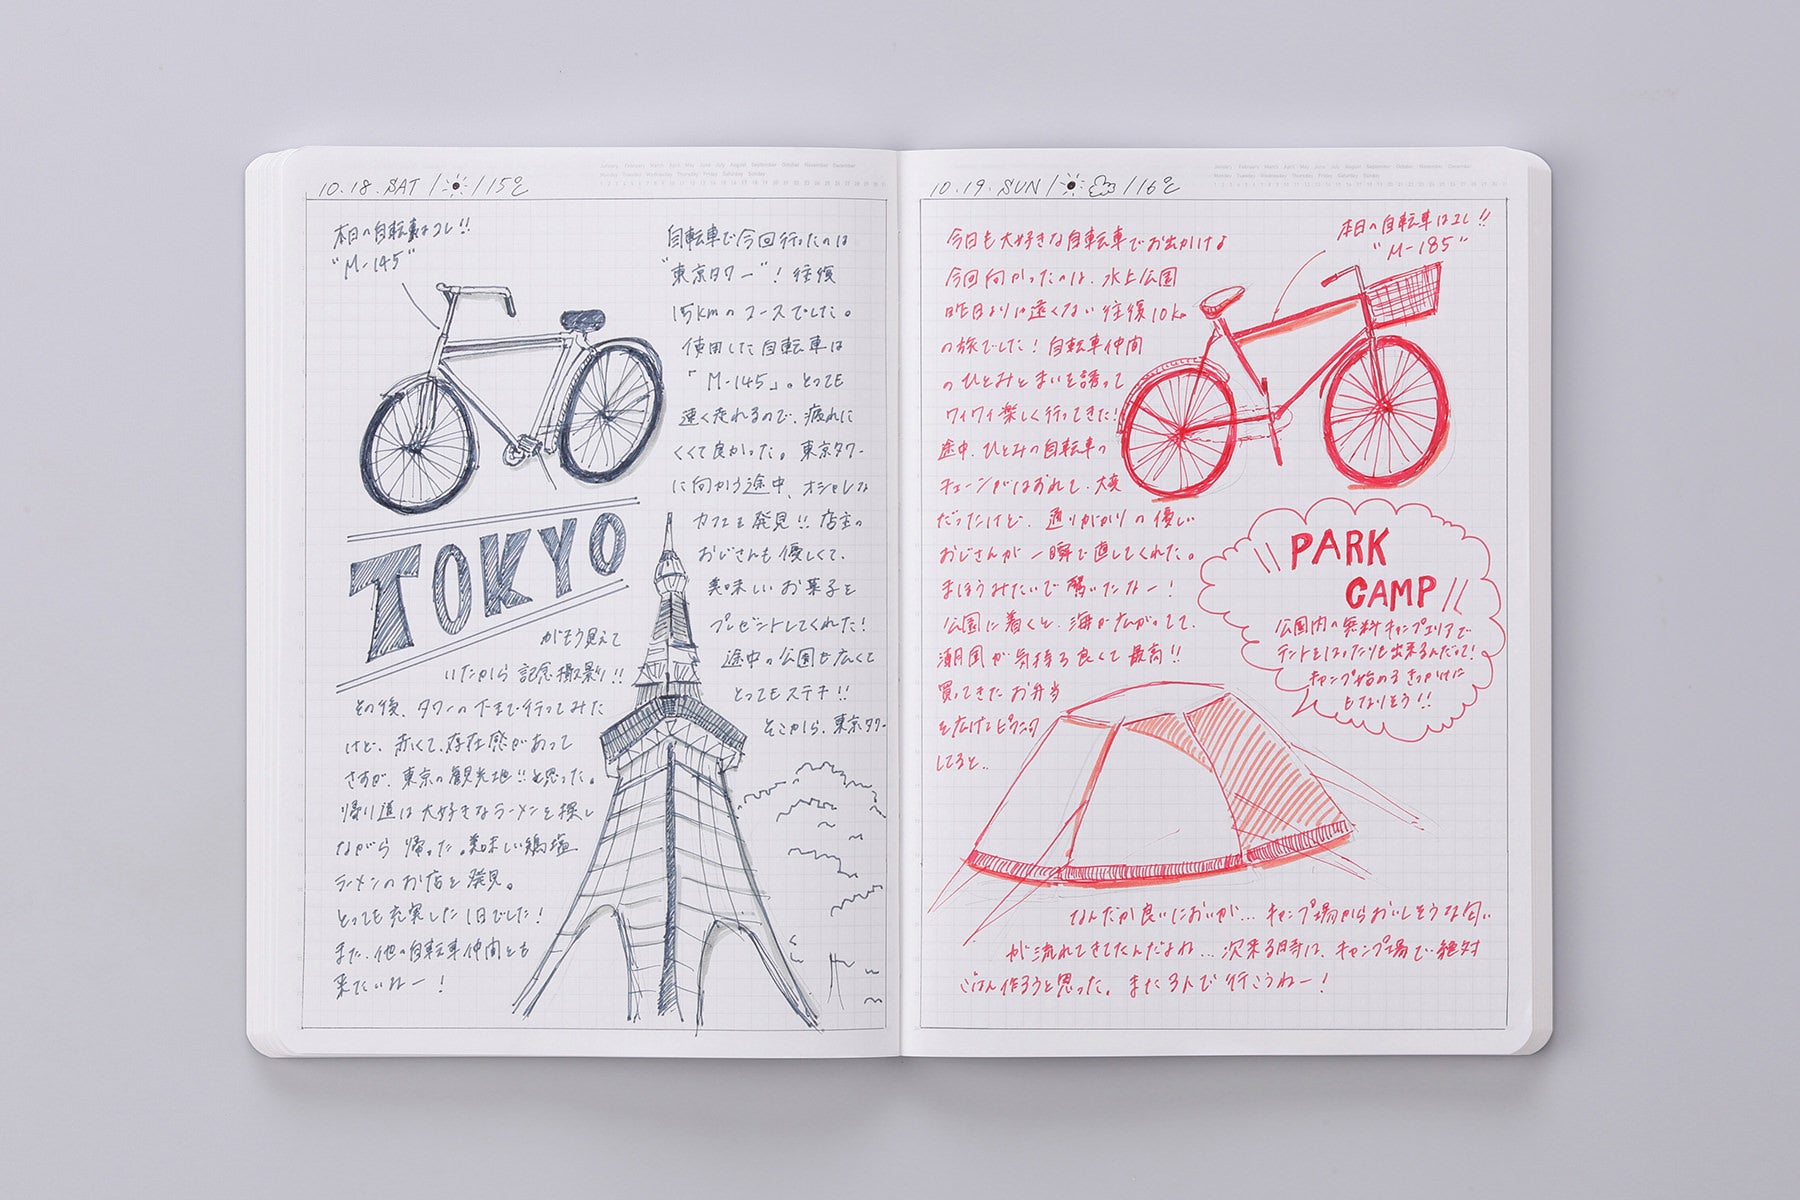 January February March April May June July August September October November December
Monday Tuesday Wednesday Thursday Friday Saturday Sunday
1 2 3 4 5 6 7 8 9 10 11 12 13 14 15 16 17 18 19 20 21 22 23 24 25 26 27 28 29 30 31
10.18.SAT / / 15℃
本日の自転車はコレ!!
"M-145"
自転車で今回行ったのは
"東京タワー"! 往復
15kmのコースでした。
使用した自転車は
「M-145」。とっても
速く走れるので、疲れに
くくて良かった。東京タワー
に向かう途中、オシャレな
カフェを発見!! 店主の
おじさんも優しくて、
美味しいお菓子を
プレゼントしてくれた!
途中の公園も広くて
とってもステキ!!
そこから、東京タワー
TOKYO
がもう見えて
いたから 記念撮影!!
その後、タワーの下まで行ってみた
けど、赤くて、存在感があって
さすが、東京の観光地!!と思った。
帰り道は大好きなラーメンを探し
ながら 帰った。美味しい鶏塩
ラーメンのお店を発見。
とっても充実した1日でした!
また、他の自転車仲間とも
来たいねー!
January February March April May June July August September October November December
Monday Tuesday Wednesday Thursday Friday Saturday Sunday
1 2 3 4 5 6 7 8 9 10 11 12 13 14 15 16 17 18 19 20 21 22 23 24 25 26 27 28 29 30 31
10.19.SUN / / 16℃
本日の自転車はコレ!!
"M-185"
今日も大好きな自転車でお出かけ♪
今回向かったのは、水上公園
昨日よりは遠くない 往復10km
の旅でした! 自転車仲間
のひとみとまいを誘って
ワイワイ楽しく行ってきた!
途中、ひとみの自転車の
チェーンがはずれて、大変
だったけど、通りがかりの優しい
おじさんが一瞬で直してくれた。
まほうみたいで驚いたなー!
公園に着くと、海が広がってて、
潮風が気持ち良くて最高!!
買ってきたお弁当
を広げてピクニック
してると..
PARK
CAMP
公園内の無料キャンプエリアで
テントをはったりも出来るんだって!
キャンプ始めるきっかけに
もなりそう!!
なんだか良いにおいが... キャンプ場からおいしそうな匂い
が流れてきてたんだよね... 次来る時は、キャンプ場で絶対
ごはん作ろうと思った。また3人で行こうねー!